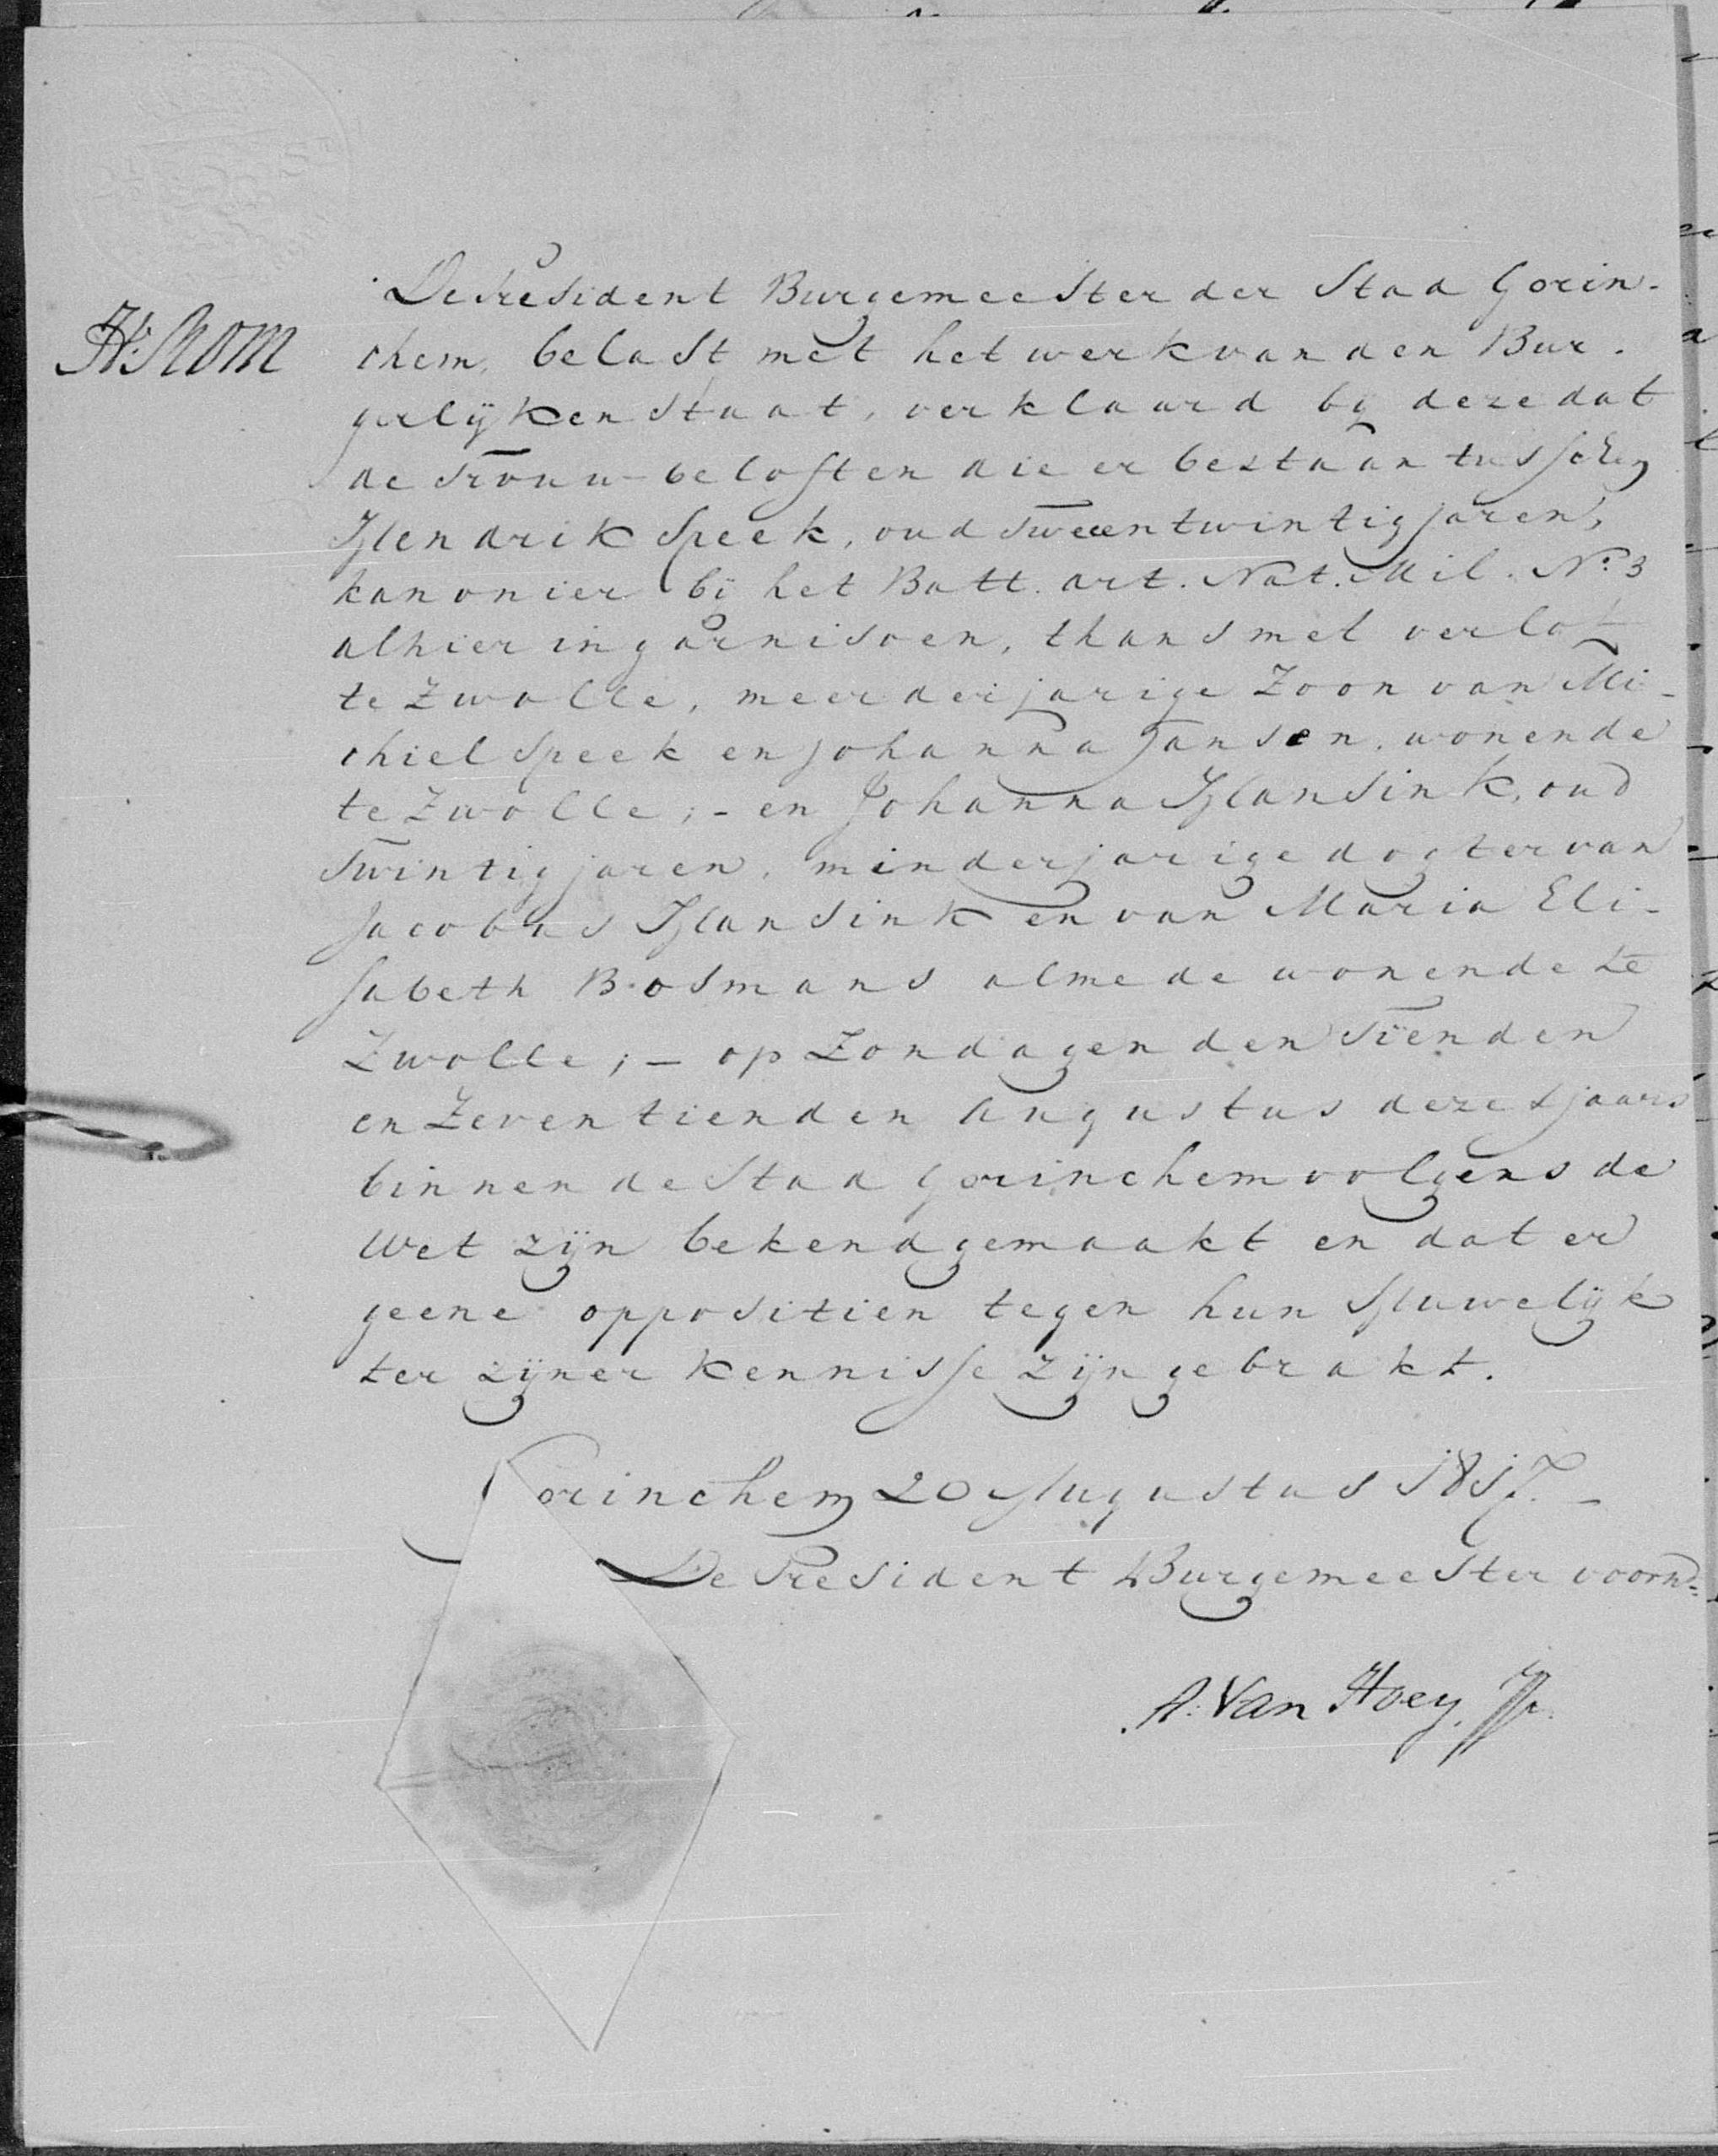 De President Burgemeester der Stad Gorin-
chem, belast met het werk van den Bur-
gerlijken Staat, verklaard by deze dat
de Trouw-beloften die er bestaan tusschen
Hendrik Speek, oud Tweeentwintig jaren,
kanonier bij het Batt. art. Nat. Mil. No. 3
alhier in garnisoen, thans met verlof
te Zwolle, meerderjarige Zoon van Mi-
chiel Speek en Johanna Jansen, wonende
te Zwolle; - en Johanna Hansink, oud
Twintig jaren, minderjarige dogter van
Jacobus Hansink en van Maria Eli-
sabeth Bosmans almede wonende te
Zwolle; - op Zondagen den Tienden
en Zeventienden Augustus dezes jaars
binnen de Stad Gorinchem volgens de
Wet zijn bekend gemaakt en dat er
geene oppositien tegen hun Huwelijk
ter zijner kennisse zijn gebrakt.
Gorinchem 20 Augustus 1817. -
De President Burgemeester voornd=
A. Van Hoey. Jr.